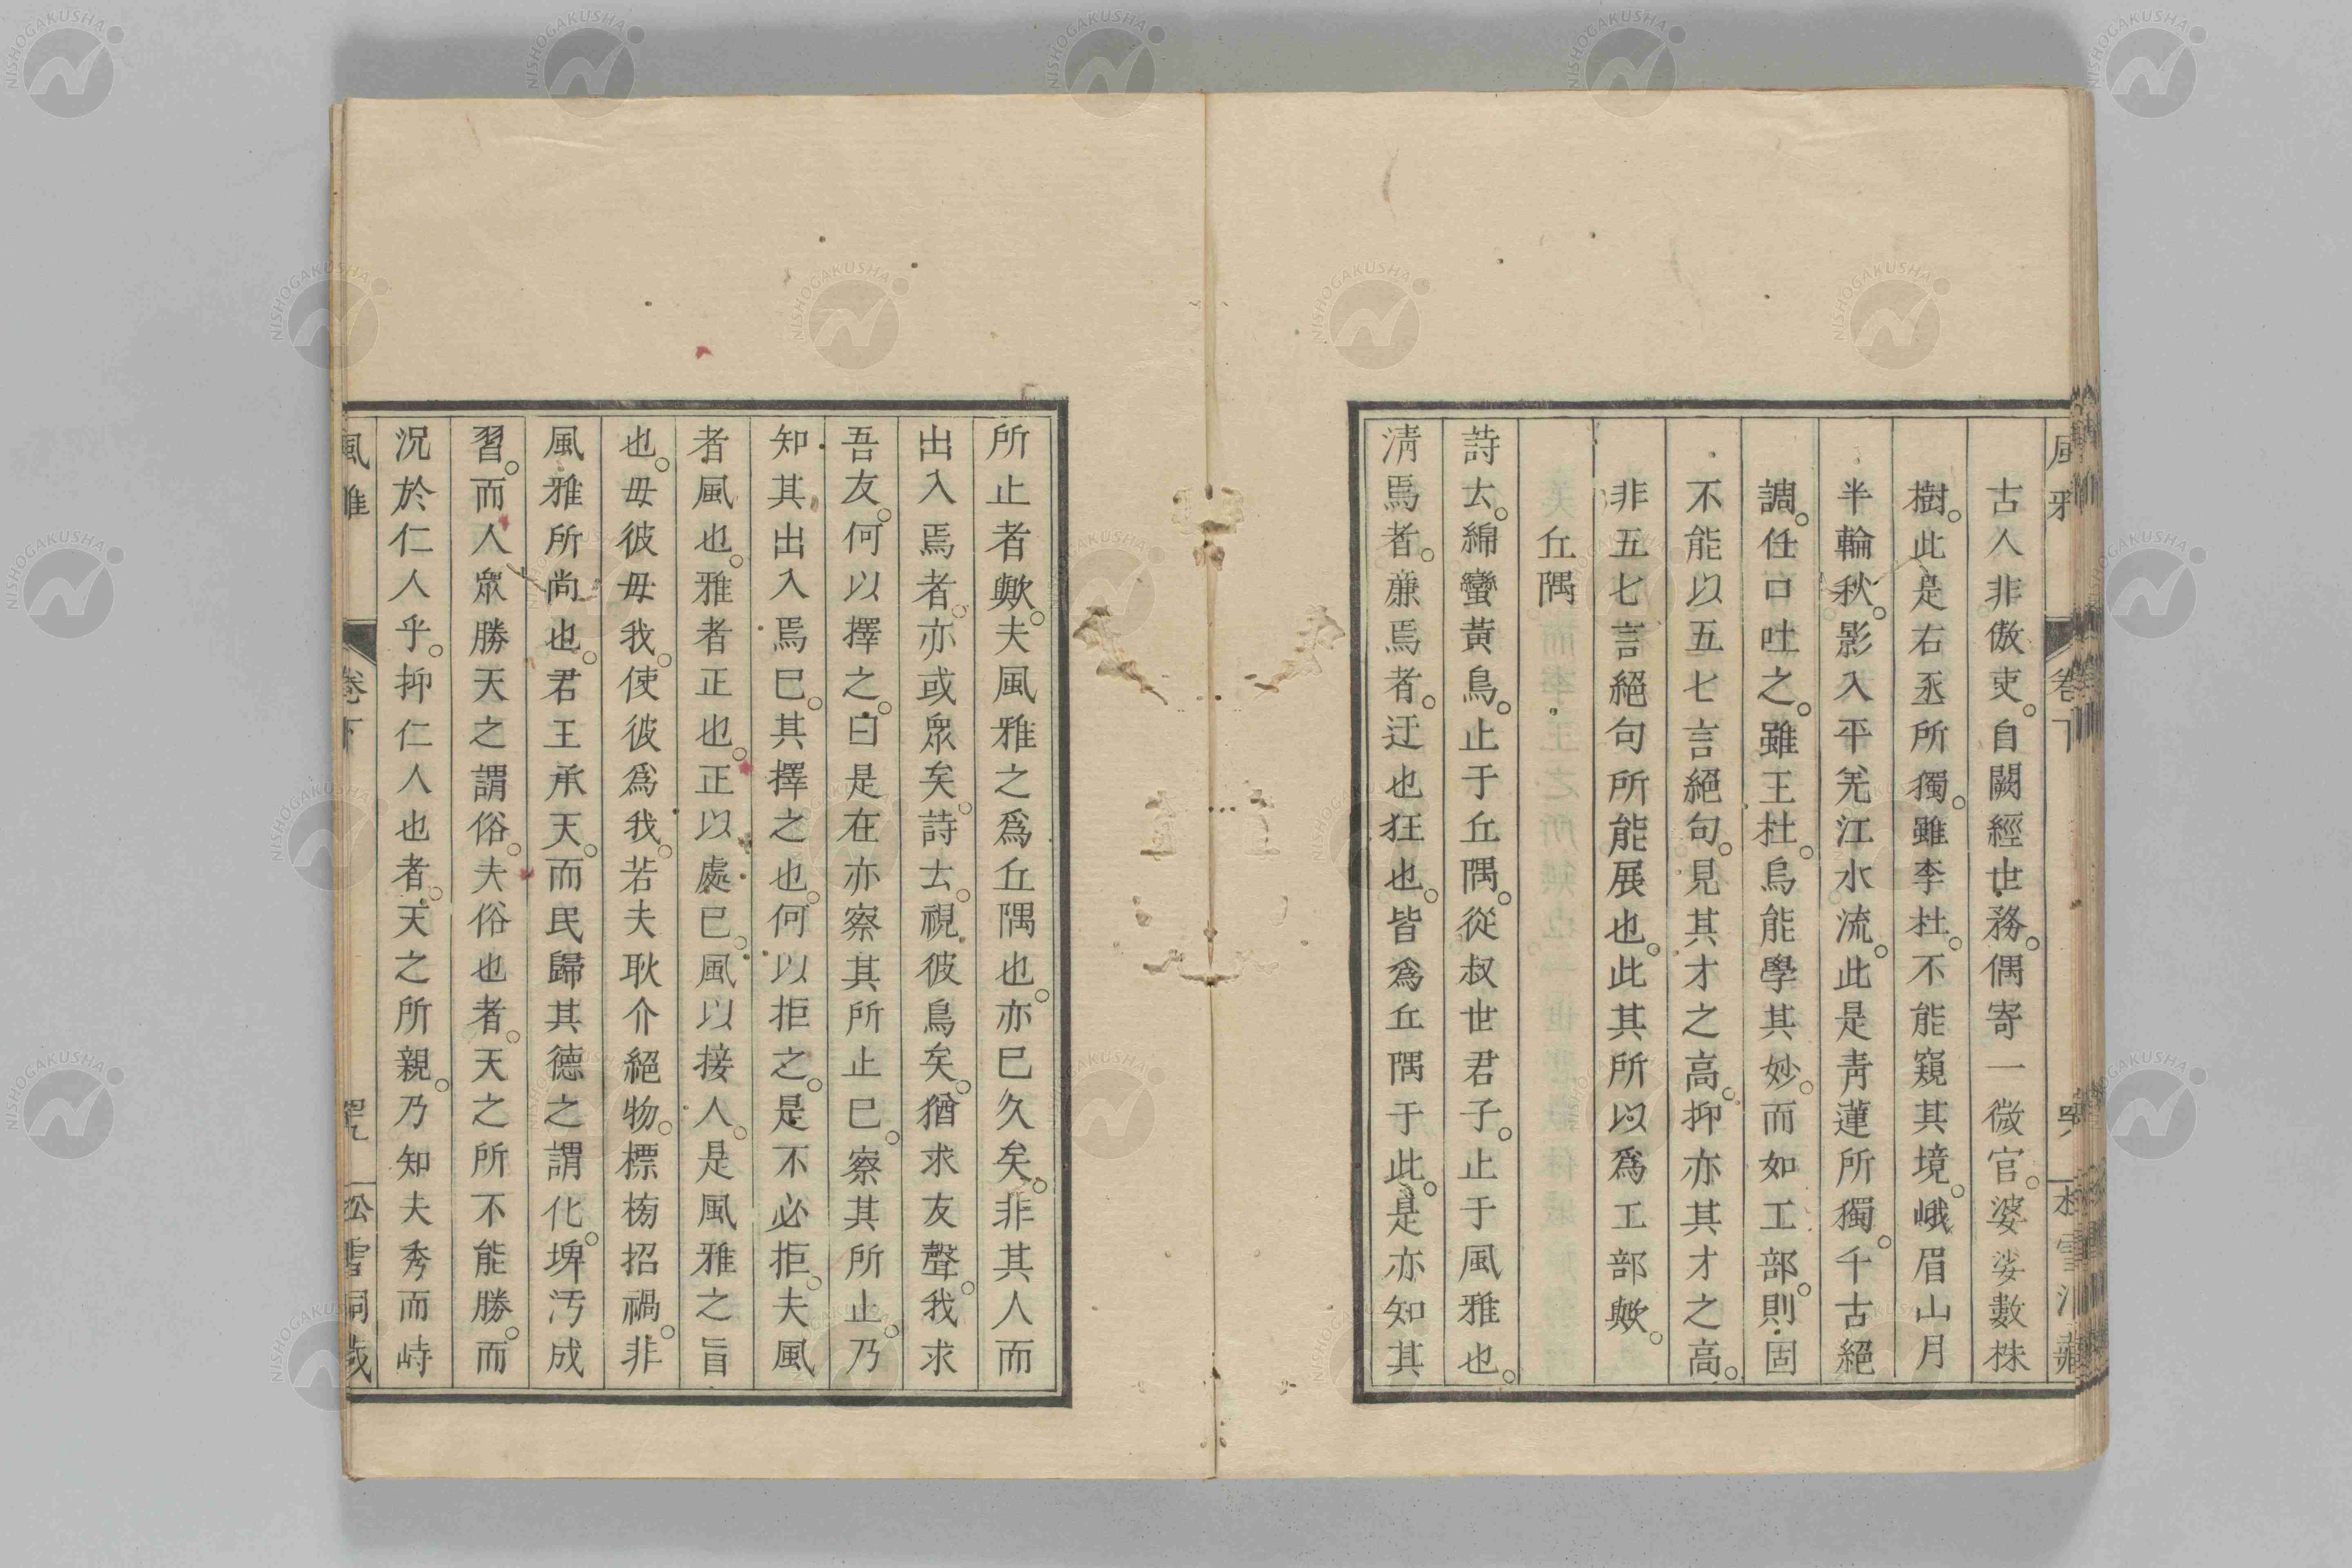 古人非傲吏。自闕經世務。偶寄一微官。婆娑數株
樹。此是右丞所獨。雖李杜。不能窺其境。峨眉山月
半輪秋。影入平羌江水流。此是靑蓮所獨。千古絕
調。任口吐之。雖王杜。烏能學其妙。而如工部。則固
不能以五七言絕句。見其才之高。抑亦其才之高。
非五七言絕句所能展也。此其所以爲工部歟。
丘隅
詩云。綿蠻黃鳥。止于丘隅。從叔世君子。止于風雅也。
淸焉者。廉焉者。迂也狂也。皆爲丘隅于此。是亦知其
所止者歟。夫風雅之爲丘隅也。亦已久矣。非其人而
出入焉者。亦或衆矣。詩云。視彼鳥矣。猶求友聲。我求
吾友。何以擇之。曰是在亦察其所止已。察其所止。乃
知其出入焉已。其擇之也。何以拒之。是不必拒。夫風
者風也。雅者正也。正以處已。風以接人。是風雅之旨
也。毋彼毋我。使彼爲我。若夫耿介絕物。標榜招禍。非
風雅所尚也。君王承天。而民歸其德之謂化。埤汚成
習。而人衆勝天之謂俗。夫俗也者。天之所不能勝。而
況於仁人乎。抑仁人也者。天之所親。乃知夫秀而峙
風雅 卷下
NISHOGAKUSHA